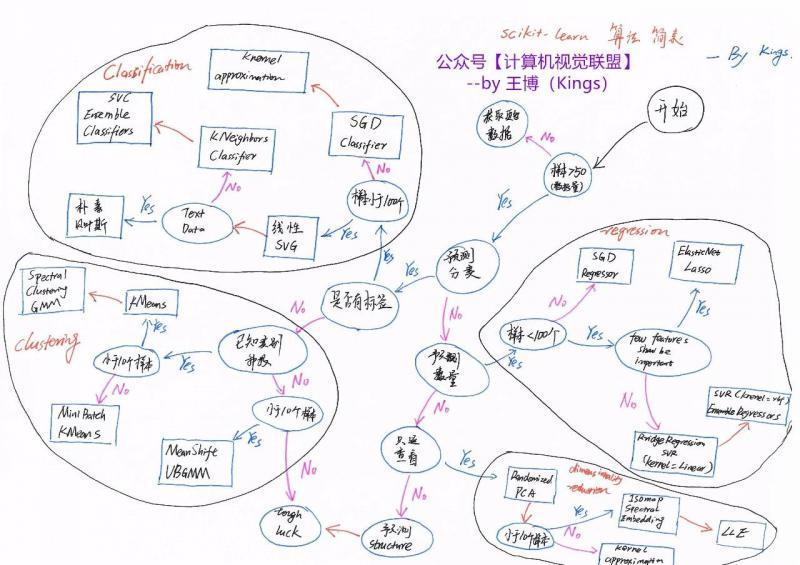 scikit-learn 算法 简表
-- By Kings.
公众号【计算机视觉联盟】
--by 王博（Kings）
开始
样本>50
(数据量)
No
获取更多
数据
Yes
预测
分类
Yes
是否有标签
Yes
No
No
Classification
Kernel
approximation
SVC
Ensemble
Classifiers
KNeighbors
Classifier
SGD
Classifier
No
No
样本小于100个
Yes
Text
Data
Yes
朴素
贝叶斯
线性
SVG
Clustering
Spectral
Clustering
GMM
KMeans
Yes
小于10个样本
Yes
已知类别
种数
No
No
Mini Batch
KMeans
小于10个样本
Yes
MeanShift
VBGMM
No
tough
luck
预测
数量
Yes
No
只是
查看
Yes
No
预测
structure
regression
SGD
Regressor
ElasticNet
Lasso
No
Yes
样本<100个
Yes
few features
should be
important
No
SVR (kernel='rbf')
EnsembleRegressors
RidgeRegression
SVR
(kernel=Linear)
dimensionality
-reduction
Randomized
PCA
Yes
Isomap
Spectral
Embedding
LLE
小于10个样本
No
Kernel
approximation